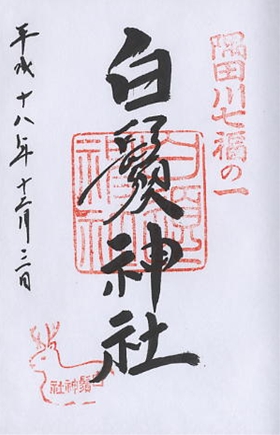 隅田川七福の一
白鬚神社
平成十八年十二月三日
白鬚神社
白鬚神社